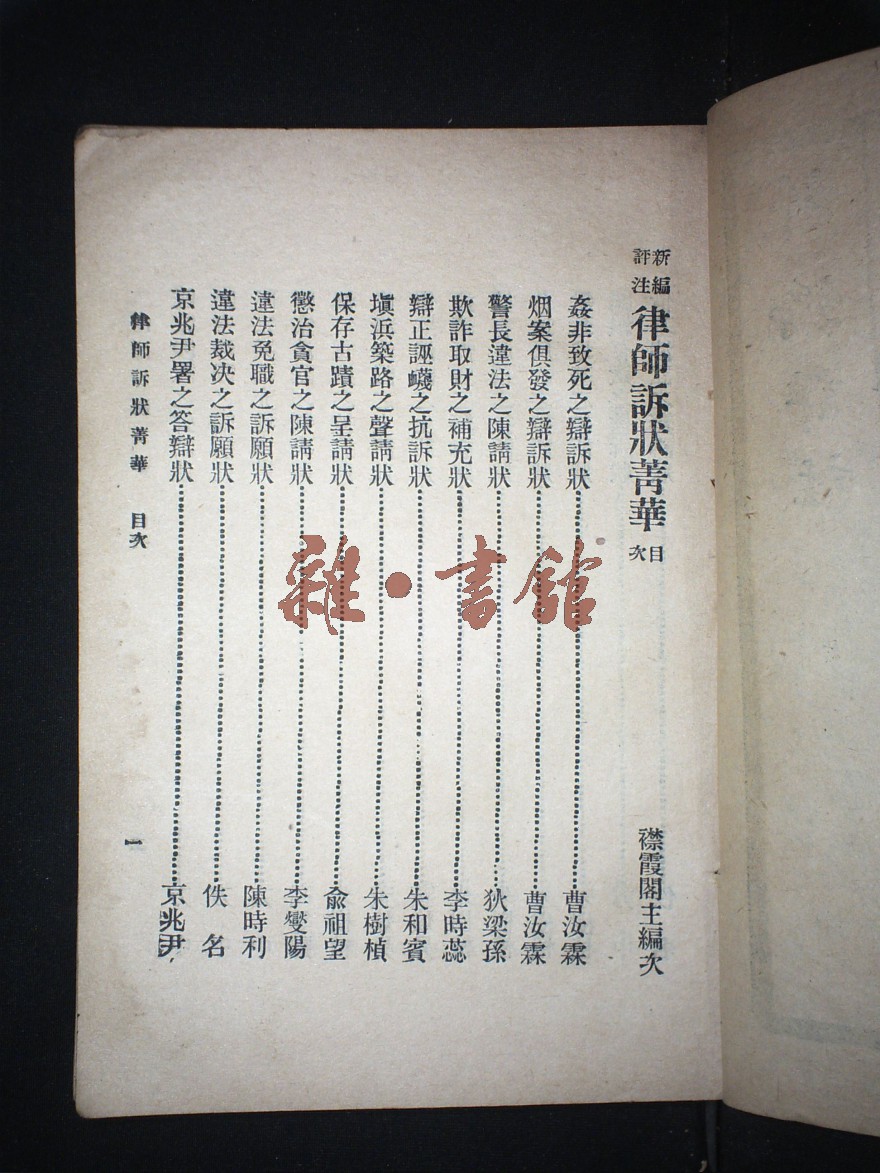 新編評注律師訴狀菁華目次
襟霞閣主編次
姦非致死之辯訴狀 曹汝霖
烟案俱發之辯訴狀 曹汝霖
警長違法之陳請狀 狄梁孫
欺詐取財之補充狀 李時蕊
辯正誣衊之抗訴狀 朱和賓
塡浜築路之聲請狀 朱樹楨
保存古蹟之呈請狀 俞祖望
懲治貪官之陳請狀 李燮陽
違法免職之訴願狀 陳時利
違法裁决之訴願狀 佚名
京兆尹署之答辯狀 京兆尹
律師訴狀菁華 目次
一
雜·書館